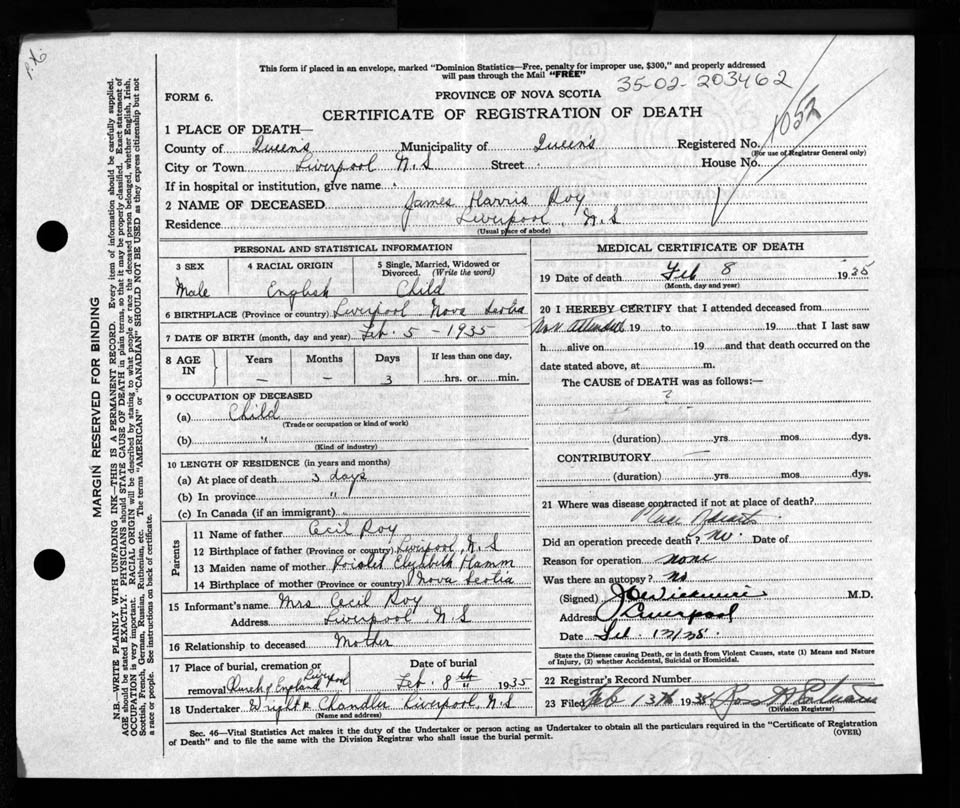 This form if placed in an envelope, marked "Dominion Statistics—Free, penalty for improper use, $300," and properly addressed
will pass through the Mail "FREE"
35-02-203462
FORM 6.
PROVINCE OF NOVA SCOTIA
CERTIFICATE OF REGISTRATION OF DEATH
1052
1 PLACE OF DEATH—
County of Queen's Municipality of Queen's Registered No.
(For use of Registrar General only)
City or Town Liverpool N.S Street House No.
If in hospital or institution, give name
2 NAME OF DECEASED James Harris Roy
Residence Liverpool N.S
(Usual place of abode)
PERSONAL AND STATISTICAL INFORMATION
3 SEX 4 RACIAL ORIGIN 5 Single, Married, Widowed or Divorced. (Write the word)
Male English Child
6 BIRTHPLACE (Province or country) Liverpool Nova Scotia
7 DATE OF BIRTH (month, day and year) Feb. 5 - 1935
8 AGE IN Years Months Days If less than one day,
— — 3 hrs. or min.
9 OCCUPATION OF DECEASED
(a) Child
(Trade or occupation or kind of work)
(b) "
(Kind of industry)
10 LENGTH OF RESIDENCE (in years and months)
(a) At place of death 3 days
(b) In province "
(c) In Canada (if an immigrant)
Parents
11 Name of father Cecil Roy
12 Birthplace of father (Province or country) Liverpool N.S
13 Maiden name of mother Elizabeth Hamm
14 Birthplace of mother (Province or country) Nova Scotia
15 Informant's name Mrs Cecil Roy
Address Liverpool N.S
16 Relationship to deceased Mother
17 Place of burial, cremation or removal Church of England Liverpool Date of burial Feb. 8th 1935
18 Undertaker Wright & Chandler Liverpool N.S
(Name and address)
MEDICAL CERTIFICATE OF DEATH
19 Date of death Feb 8 1935
(Month, day and year)
20 I HEREBY CERTIFY that I attended deceased from
Not attended 19 to 19 that I last saw
h alive on 19 and that death occurred on the
date stated above, at m.
The CAUSE of DEATH was as follows:—
?
(duration) yrs mos dys.
CONTRIBUTORY —
(duration) yrs mos dys.
21 Where was disease contracted if not at place of death?
Place
Did an operation precede death? no. Date of
Reason for operation none
Was there an autopsy? no
(Signed) M.D.
Address Liverpool
Date Feb. 12/35.
State the Disease causing Death, or in death from Violent Causes, state (1) Means and
Nature of Injury, (2) whether Accidental, Suicidal or Homicidal.
22 Registrar's Record Number
23 Filed Feb 13th 1935
(Division Registrar)
Sec. 46—Vital Statistics Act makes it the duty of the Undertaker or person acting as Undertaker to obtain all the particulars required in the "Certificate of Registration
of Death" and to file the same with the Division Registrar who shall issue the burial permit.
(OVER)
MARGIN RESERVED FOR BINDING
N.B.—WRITE PLAINLY WITH UNFADING INK—THIS IS A PERMANENT RECORD. Every item of information should be carefully supplied.
AGE should be stated EXACTLY. PHYSICIANS should STATE CAUSE OF DEATH in plain terms, so that it may be properly classified. Exact statement of
OCCUPATION is very important. RACIAL ORIGIN will be described by stating to what people or race the deceased person belonged, whether English, Irish,
Scottish, French, German, Russian, Ruthenian, etc. The terms "AMERICAN" or "CANADIAN" SHOULD NOT BE USED as they express citizenship but not
a race or people. See instructions on back of certificate.